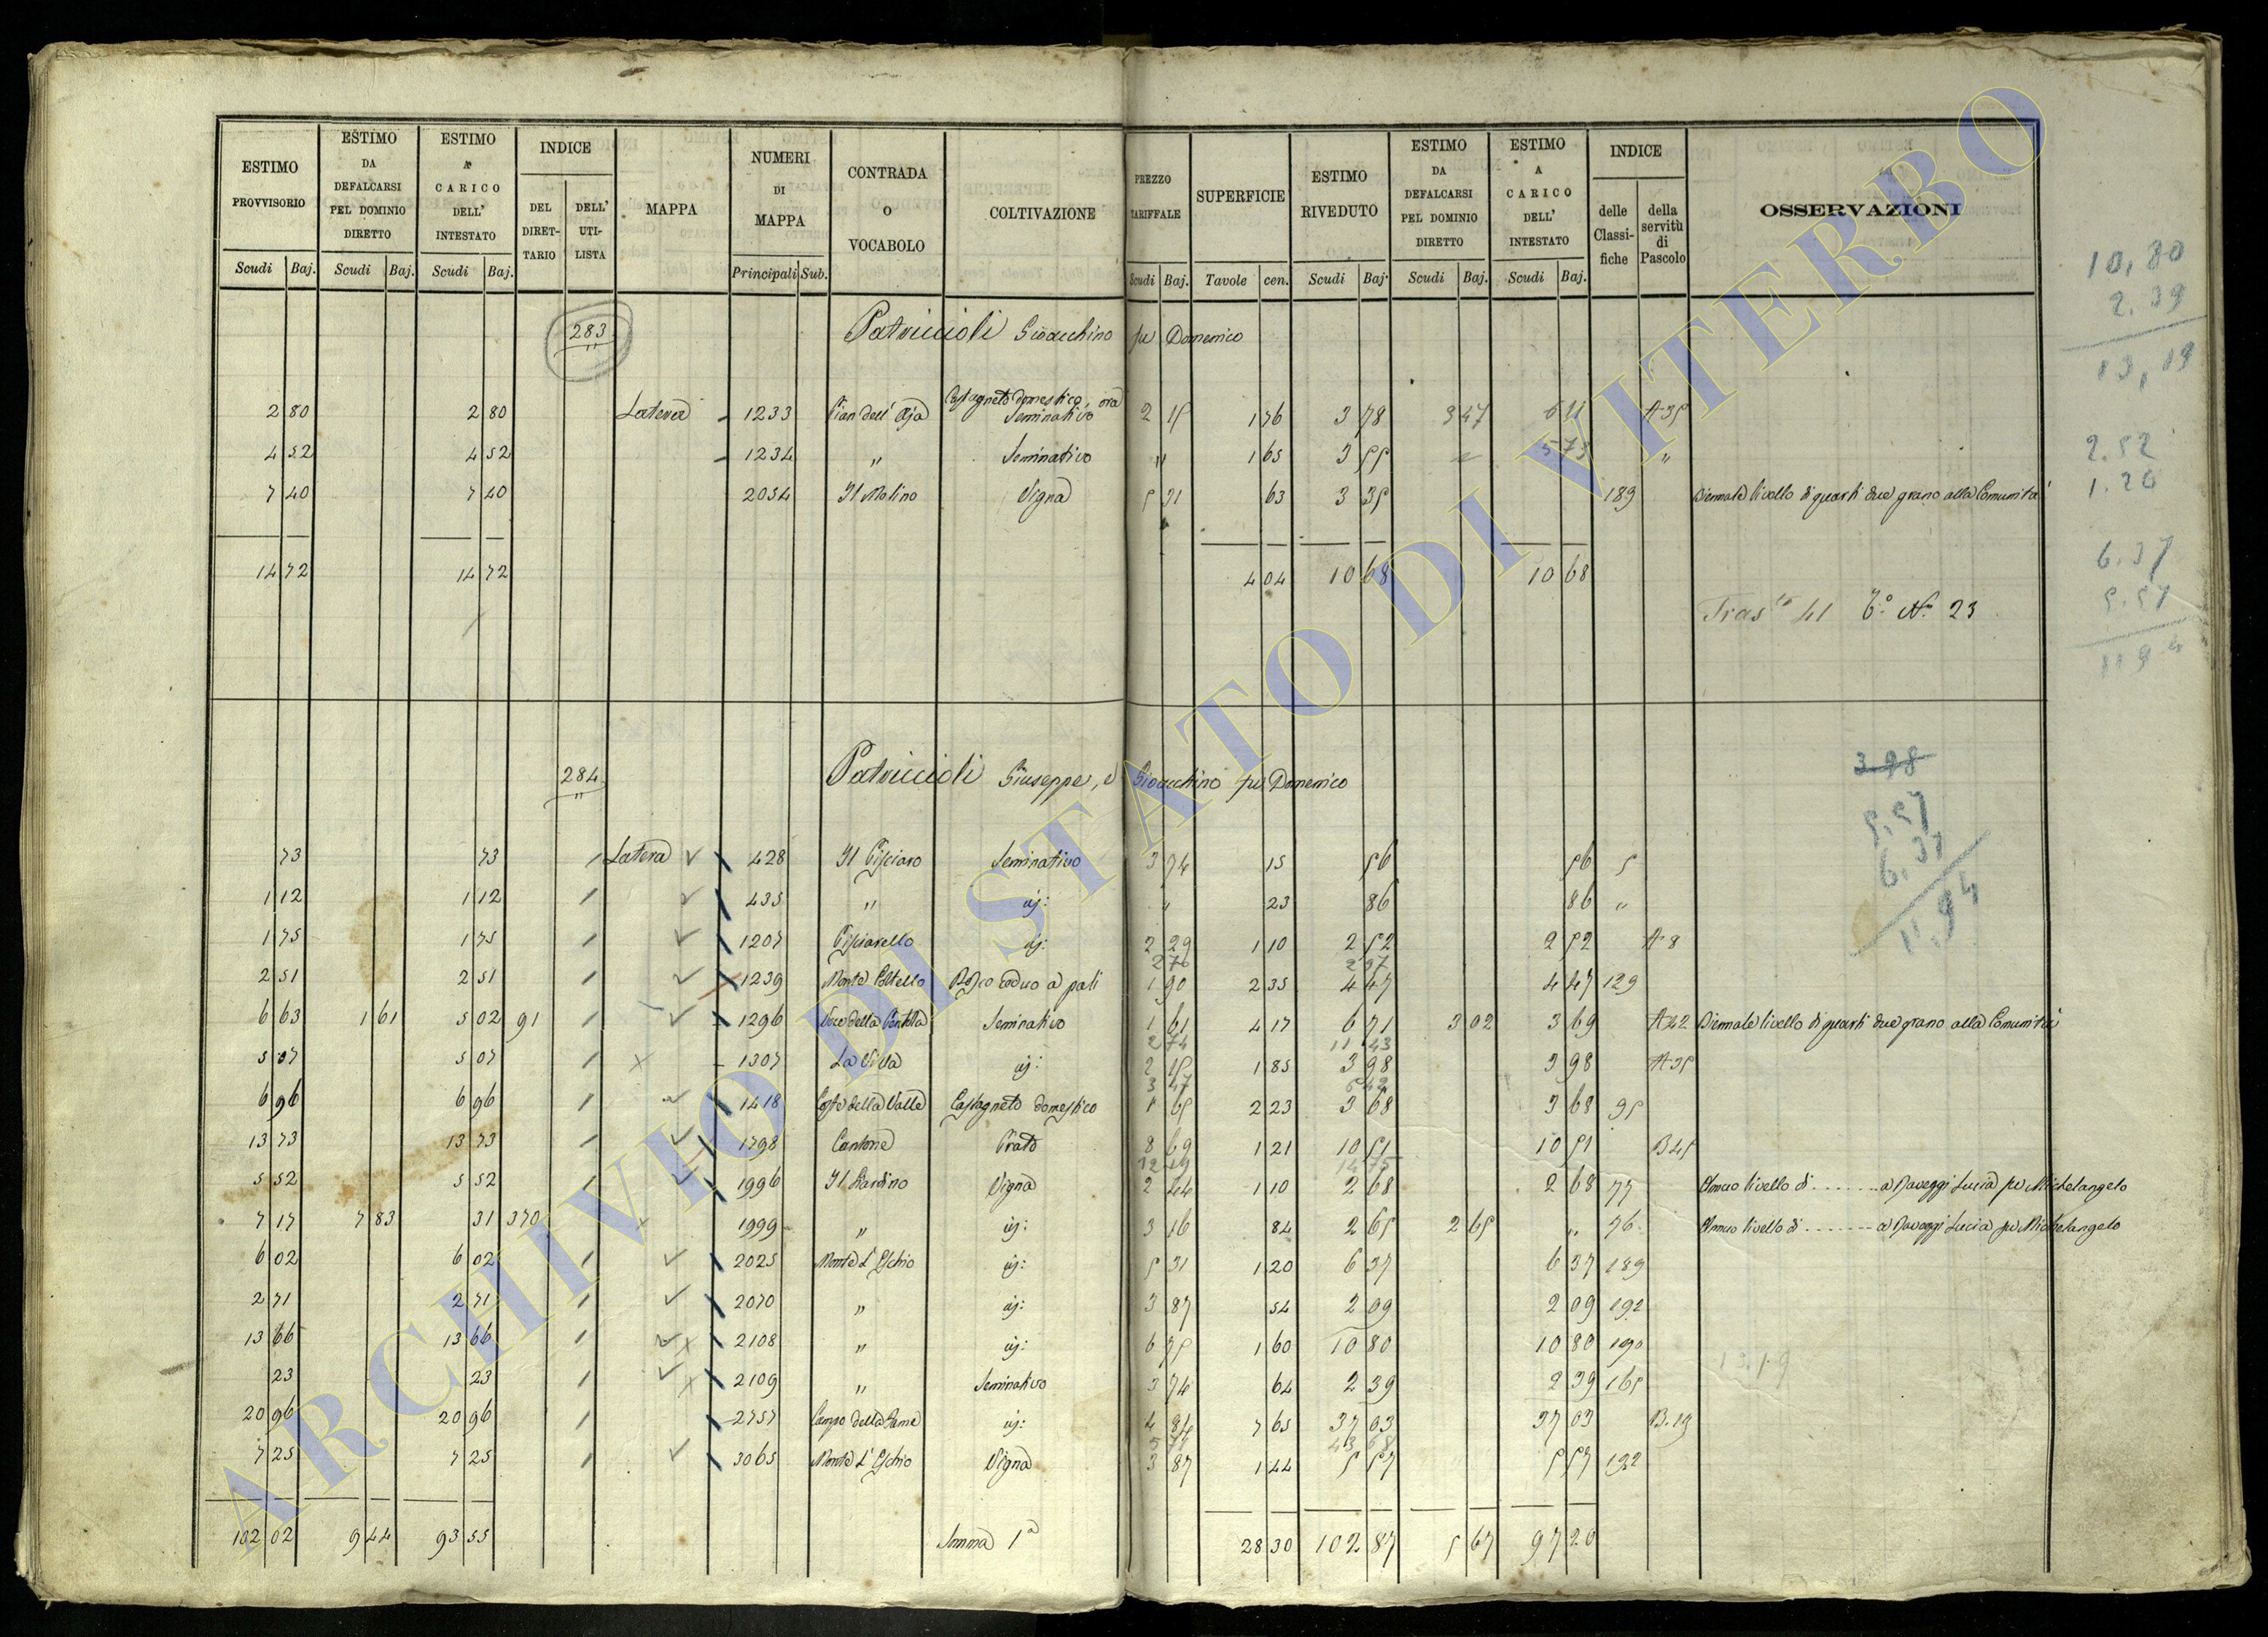 ESTIMO PROVVISORIO | ESTIMO DA DEFALCARSI PEL DOMINIO DIRETTO | ESTIMO A CARICO DELL' INTESTATO | INDICE | MAPPA | NUMERI DI MAPPA | CONTRADA O VOCABOLO | COLTIVAZIONE | PREZZO TARIFFALE | SUPERFICIE | ESTIMO RIVEDUTO | ESTIMO DA DEFALCARSI PEL DOMINIO DIRETTO | ESTIMO A CARICO DELL' INTESTATO | INDICE | OSSERVAZIONI
DEL DIRETTARIO | DELL' UTILISTA | delle Classifiche | della servitù di Pascolo
Scudi Baj. | Scudi Baj. | Scudi Baj. | Principali Sub. | Scudi Baj. | Tavole cen. | Scudi Baj. | Scudi Baj. | Scudi Baj.
283 Patriccioli Gioacchino fu Domenico
2 80 | 2 80 | Latera | 1233 | Pian dell' Aja | Castagneto domestico, ora Seminativo | 2 15 | 1 76 | 3 78 | 3 47 | 6 11 | A 35
4 52 | 4 52 | 1234 | " | Seminativo | " | 1 65 | 3 55 | 5 73 | "
7 40 | 7 40 | 2054 | Il Molino | Vigna | 5 31 | 63 | 3 35 | 189 | Biennale livello di quarti due grano alla Comunità
14 72 | 14 72 | 4 04 | 10 68 | 10 68
Tras.to 41 T.o N. 23
284 Patriccioli Giuseppe, e Gioacchino fu Domenico
73 | 73 | Latera | 428 | Il Pisciaro | Seminativo | 3 74 | 15 | 56 | 56 | 5
1 12 | 1 12 | 435 | " | id: | " | 23 | 86 | 86 | "
1 75 | 1 75 | 1207 | Pisciarello | id: | 2 29 | 1 10 | 2 52 | 2 52 | A 8
2 51 | 2 51 | 1239 | Monte Coltello | Bosco ceduo a pali | 2 76 | 1 90 | 2 35 | 2 97 | 4 47 | 4 47 | 129
6 63 | 1 61 | 5 02 | 91 | 1296 | Seminativo | 1 61 | 4 17 | 6 71 | 3 02 | 3 69 | A 42 | Biennale livello di quarti due grano alla Comunità
5 07 | 5 07 | 1307 | id: | 2 74 | 2 15 | 1 85 | 11 43 | 3 98 | 3 98 | A 35
6 96 | 6 96 | 1418 | Coste della Valle | Castagneto domestico | 3 47 | 1 65 | 2 23 | 6 42 | 3 68 | 3 68 | 95
13 73 | 13 73 | 1798 | Cantone | Prato | 8 69 | 1 21 | 10 51 | 10 51 | B 45
5 52 | 5 52 | 1996 | Il Giardino | Vigna | 12 19 | 2 44 | 1 10 | 14 75 | 2 68 | 2 68 | 77 | Annuo livello di ....... a Paveggi Lucia fu Michelangelo
7 17 | 7 83 | 31 | 370 | 1999 | " | id: | 3 16 | 84 | 2 65 | 2 65 | " | 76 | Annuo livello di ....... a Paveggi Lucia fu Michelangelo
6 02 | 6 02 | 2025 | Monte L'Eschio | id: | 5 31 | 1 20 | 6 37 | 6 37 | 189
2 71 | 2 71 | 2070 | " | id: | 3 87 | 54 | 2 09 | 2 09 | 192
13 66 | 13 66 | 2108 | " | id: | 6 75 | 1 60 | 10 80 | 10 80 | 190
23 | 23 | 2109 | " | Seminativo | 3 74 | 64 | 2 39 | 2 39 | 165 | 13.19
20 96 | 20 96 | 2757 | Campo della Fame | id: | 4 84 | 7 65 | 37 03 | 37 03 | B.19
7 25 | 7 25 | 3065 | Monte L'Eschio | Vigna | 5 71 | 3 87 | 1 44 | 43 68 | 5 57 | 5 57 | 192
102 02 | 9 44 | 93 55 | Somma 1a | 28 30 | 102 87 | 5 67 | 97 20
10,80
2.39
13,19
2.52
1.20
6.37
5.57
11 94
3 98
5.57
6.37
11.94
ARCHIVIO DI STATO DI VITERBO